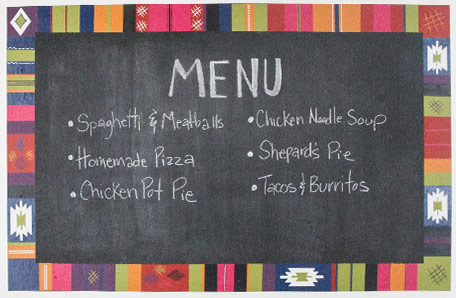 MENU
• Spaghetti & Meatballs
• Homemade Pizza
• Chicken Pot Pie
• Chicken Noodle Soup
• Shepard's Pie
• Tacos & Burritos